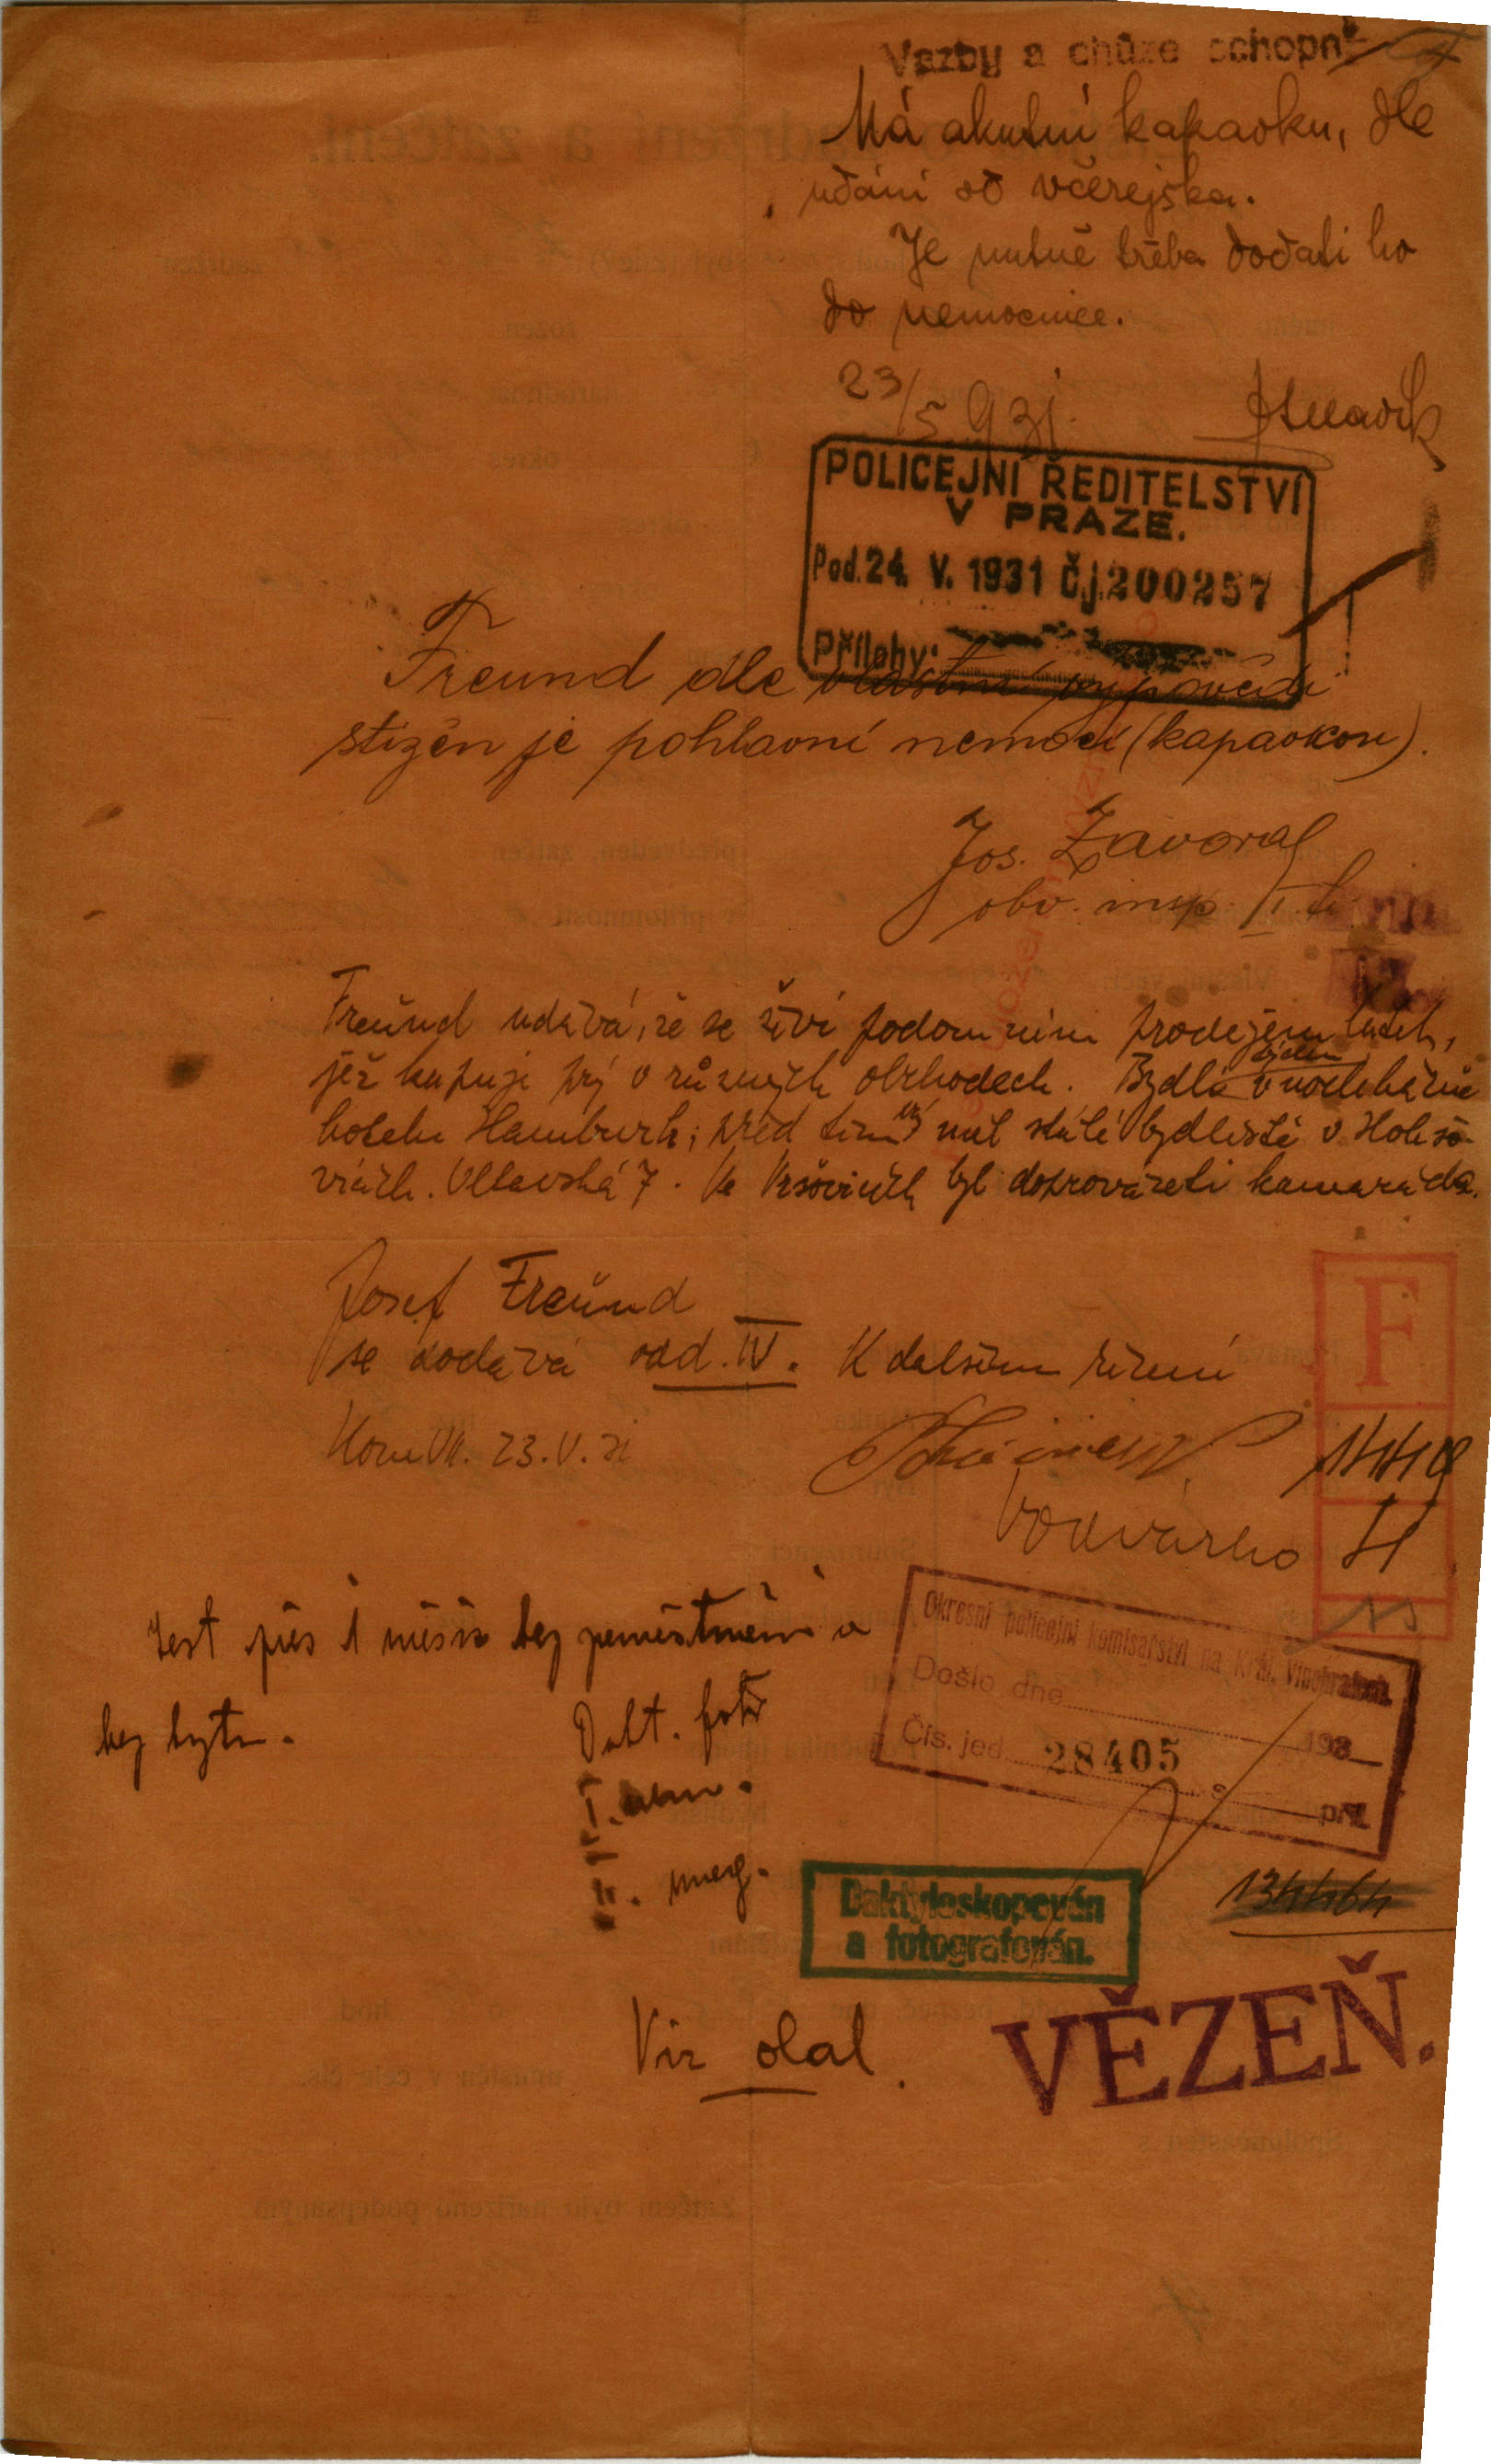 Vazby a chůze schopn
Má akutní kapavku, dle
udání od včerejška.
Je nutně třeba dodati ho
do nemocnice.
23/5 931.
POLICEJNÍ ŘEDITELSTVÍ
V PRAZE.
Pod. 24. V. 1931 Č.j. 200257
Přílohy:
Freund dle vlastní výpovědi
stižen je pohlavní nemocí (kapavkou).
Jos. Zavoral
obv. insp.
Freund udává, že se živí podomním prodejem látek,
jež kupuje prý v různých obchodech. Bydlí týden v noclehárně
hotelu Hamburk; před tím prý měl stálé bydliště v Holešo-
vicích. Vltavská 7. Ve Vršovicích byl doprovázeti kamaráda.
Josef Freund
se dodává odd. IV. K dalšímu řízení
Kom VII. 23.V.31
F
H
13
Jest přes 1 měsíc bez zaměstnání a
bez bytu.
Okresní policejní komisařství na Král. Vinohradech.
Došlo dne 193
Čís. jed. 28405 s příl.
Dakt. foto
I.
II.
Daktyloskopován
a fotografován.
VĚZEŇ.